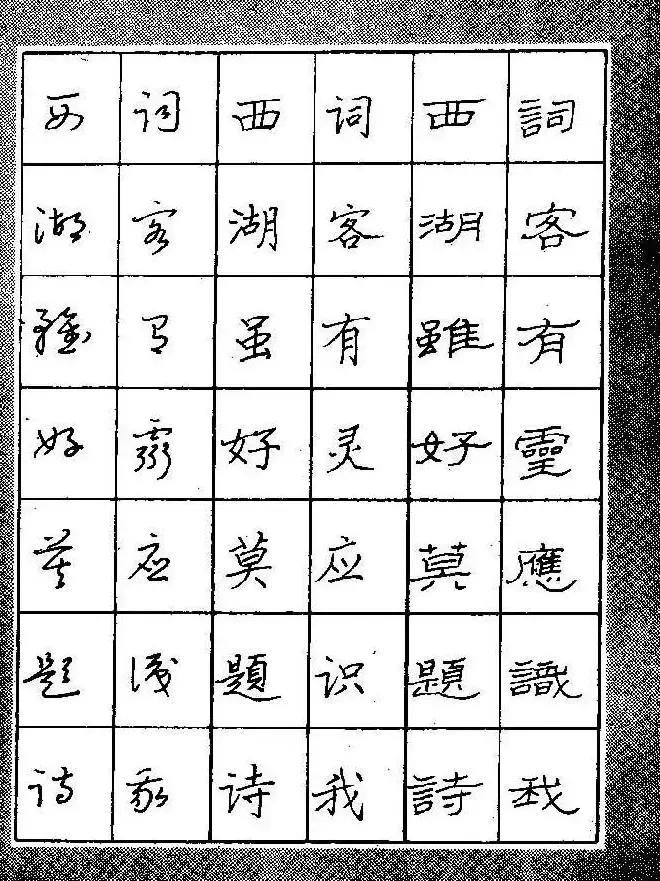 詞客有靈應識我
西湖雖好莫題詩
词客有灵应识我
西湖虽好莫題诗
词客有靈应識我
西湖雖好莫题诗